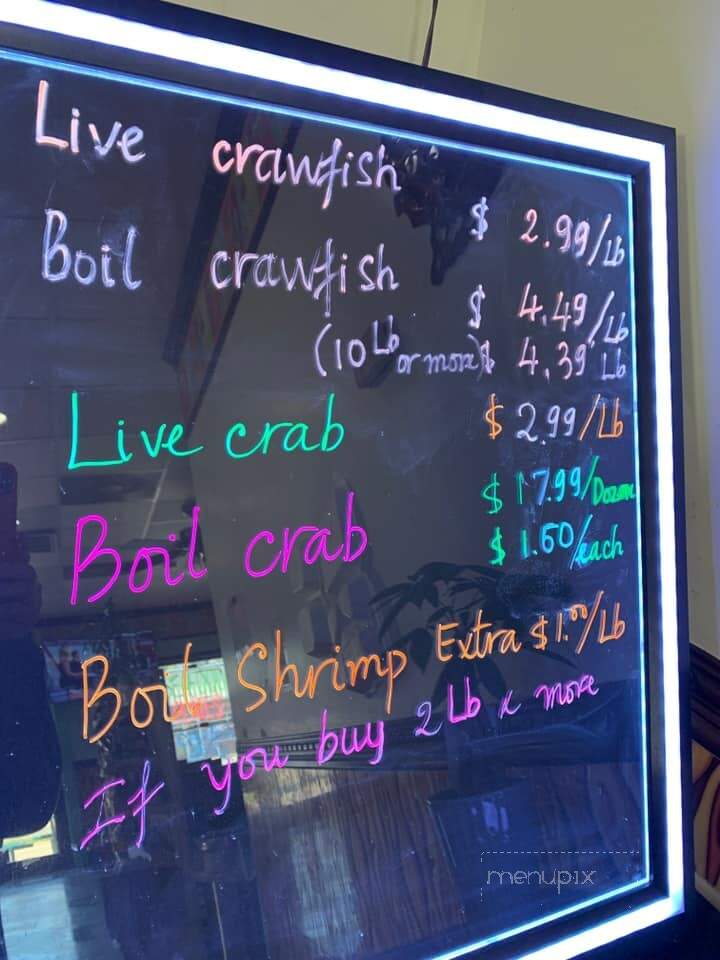 Live crawfish
$ 2.99/Lb
Boil crawfish
$ 4.49/Lb
(10 Lb or more) $ 4.39 Lb
Live crab $ 2.99/Lb
$ 17.99/Dozen
Boil crab $ 1.60/each
Boil Shrimp Extra $1.00/Lb
If you buy 2 Lb x more
menupix